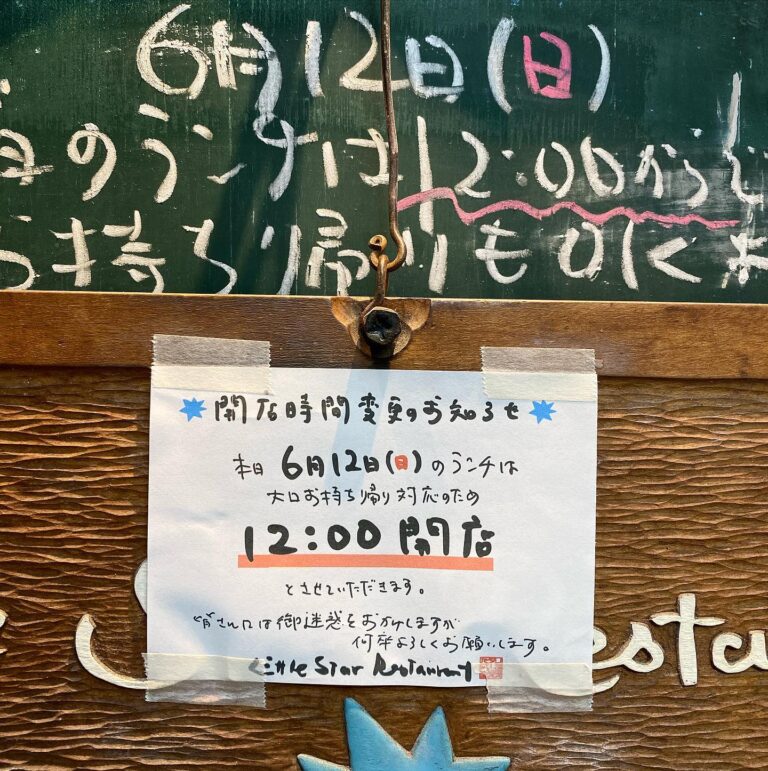 6月12日(日)
日のランチは12:00から
お持ち帰りも
開店時間変更のお知らせ
本日 6月12日(日)のランチは
大口お持ち帰り対応のため
12:00 開店
とさせていただきます。
皆さんには御迷惑をおかけしますが
何卒よろしくお願いします。
Little Star Restaurant
esta